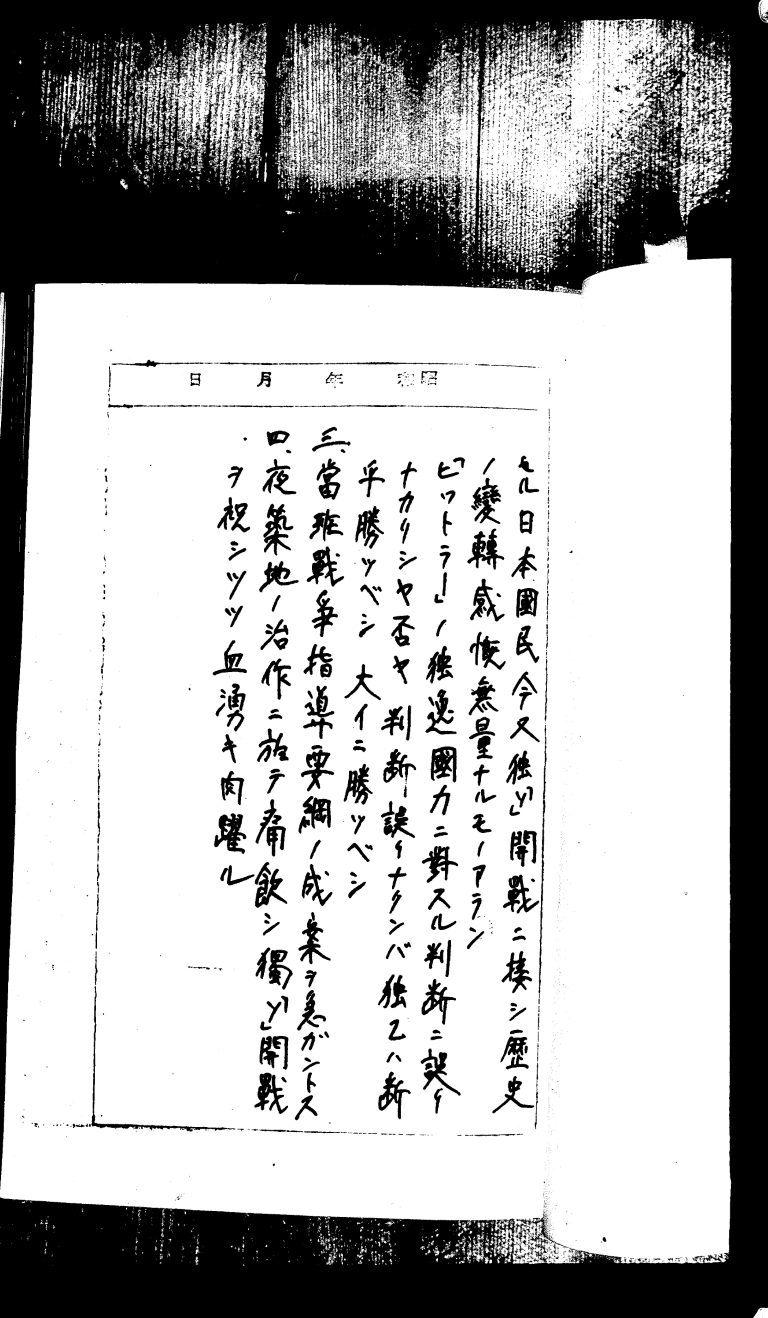 昭和　年　月　日
セル日本國民今又独「ソ」開戰ニ接シ歴史
ノ變轉感慨無量ナルモノアラン
「ヒットラー」ノ独逸國力ニ對スル判断ニ誤リ
ナカリシヤ否ヤ判断誤リナクンバ独乙ハ断
乎勝ツベシ 大イニ勝ツベシ
三、當班戰爭指導要綱ノ成案ヲ急ガントス
四、夜築地ノ治作ニ於テ痛飲シ獨「ソ」開戰
ヲ祝シツツ血湧キ肉躍ル